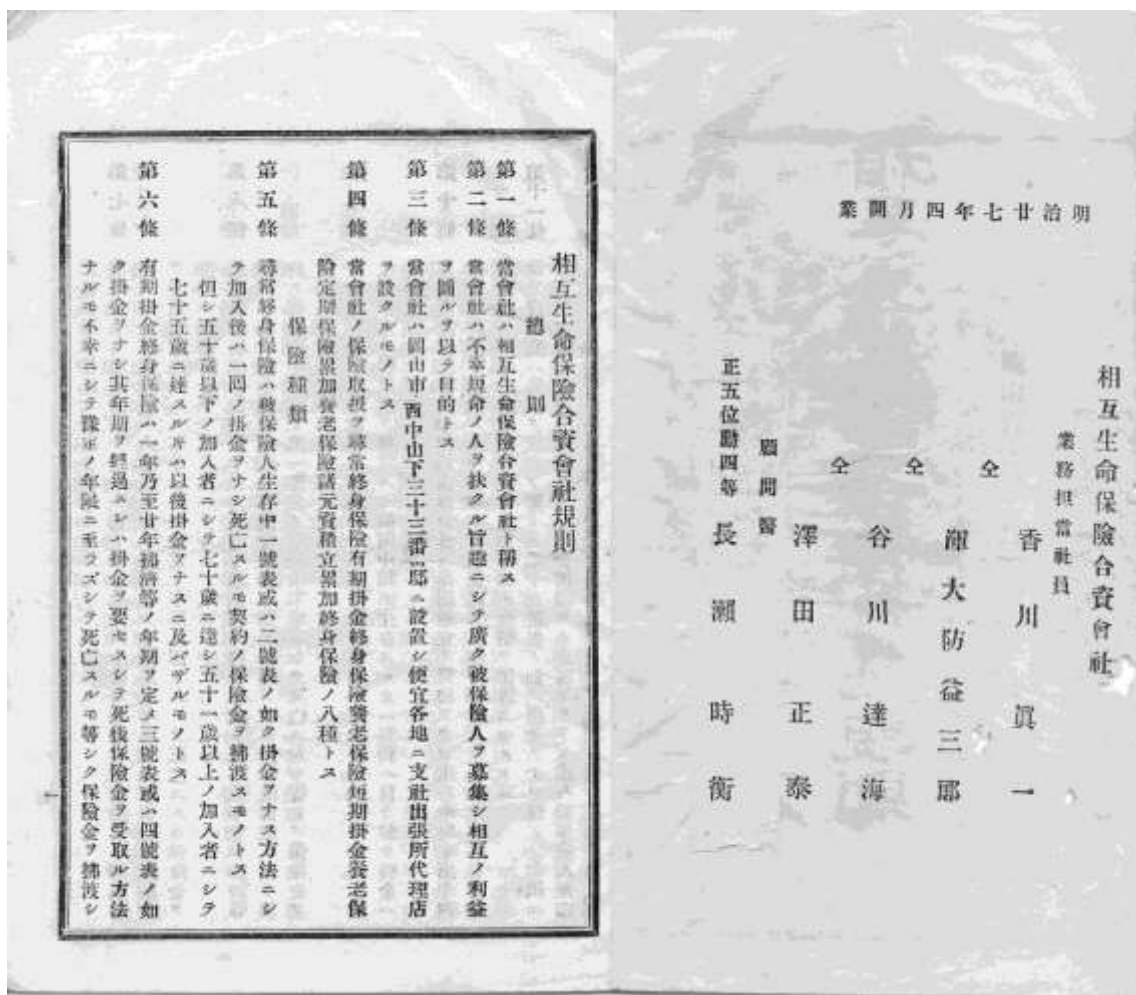 明治廿七年四月開業
相互生命保險合資會社
業務担當社員
香川眞一
仝 大防益三郎
仝 谷川達海
仝 澤田正泰
顧問醫
正五位勳四等 長瀨時衡
相互生命保險合資會社規則
總則
第一條 當會社ハ相互生命保險合資會社ト稱ス
第二條 當會社ハ不幸短命ノ人ヲ扶クル旨趣ニシテ廣ク被保險人ヲ募集シ相互ノ利益
ヲ圖ルヲ以テ目的トス
第三條 當會社ハ岡山市西中山下三十三番邸ニ設置シ便宜各地ニ支社出張所代理店
ヲ設クルモノトス
第四條 當會社ノ保險取扱ヲ尋常終身保險有期掛金終身保險養老保險短期掛金養老保
險定期保險累加養老保險諸元資積立累加終身保險ノ八種トス
保險種類
第五條 尋常終身保險ハ被保險人生存中一號表或ハ二號表ノ如ク掛金ヲナス方法ニシ
テ加入後ハ一回ノ掛金ヲナシ死亡スルモ契約ノ保險金ヲ拂渡スモノトス
但シ五十歲以下ノ加入者ニシテ七十歲ニ達シ五十一歲以上ノ加入者ニシテ
七十五歲ニ達スルトキハ以後掛金ヲナスニ及バザルモノトス
第六條 有期掛金終身保險ハ一年乃至廿年拂濟等ノ年期ヲ定メ三號表或ハ四號表ノ如
ク掛金ヲナシ其年期ヲ經過スレハ掛金ヲ要セスシテ死後保險金ヲ受取ル方法
ナルモ不幸ニシテ豫定ノ年限ニ至ラズシテ死亡スルモ等シク保險金ヲ拂渡シ